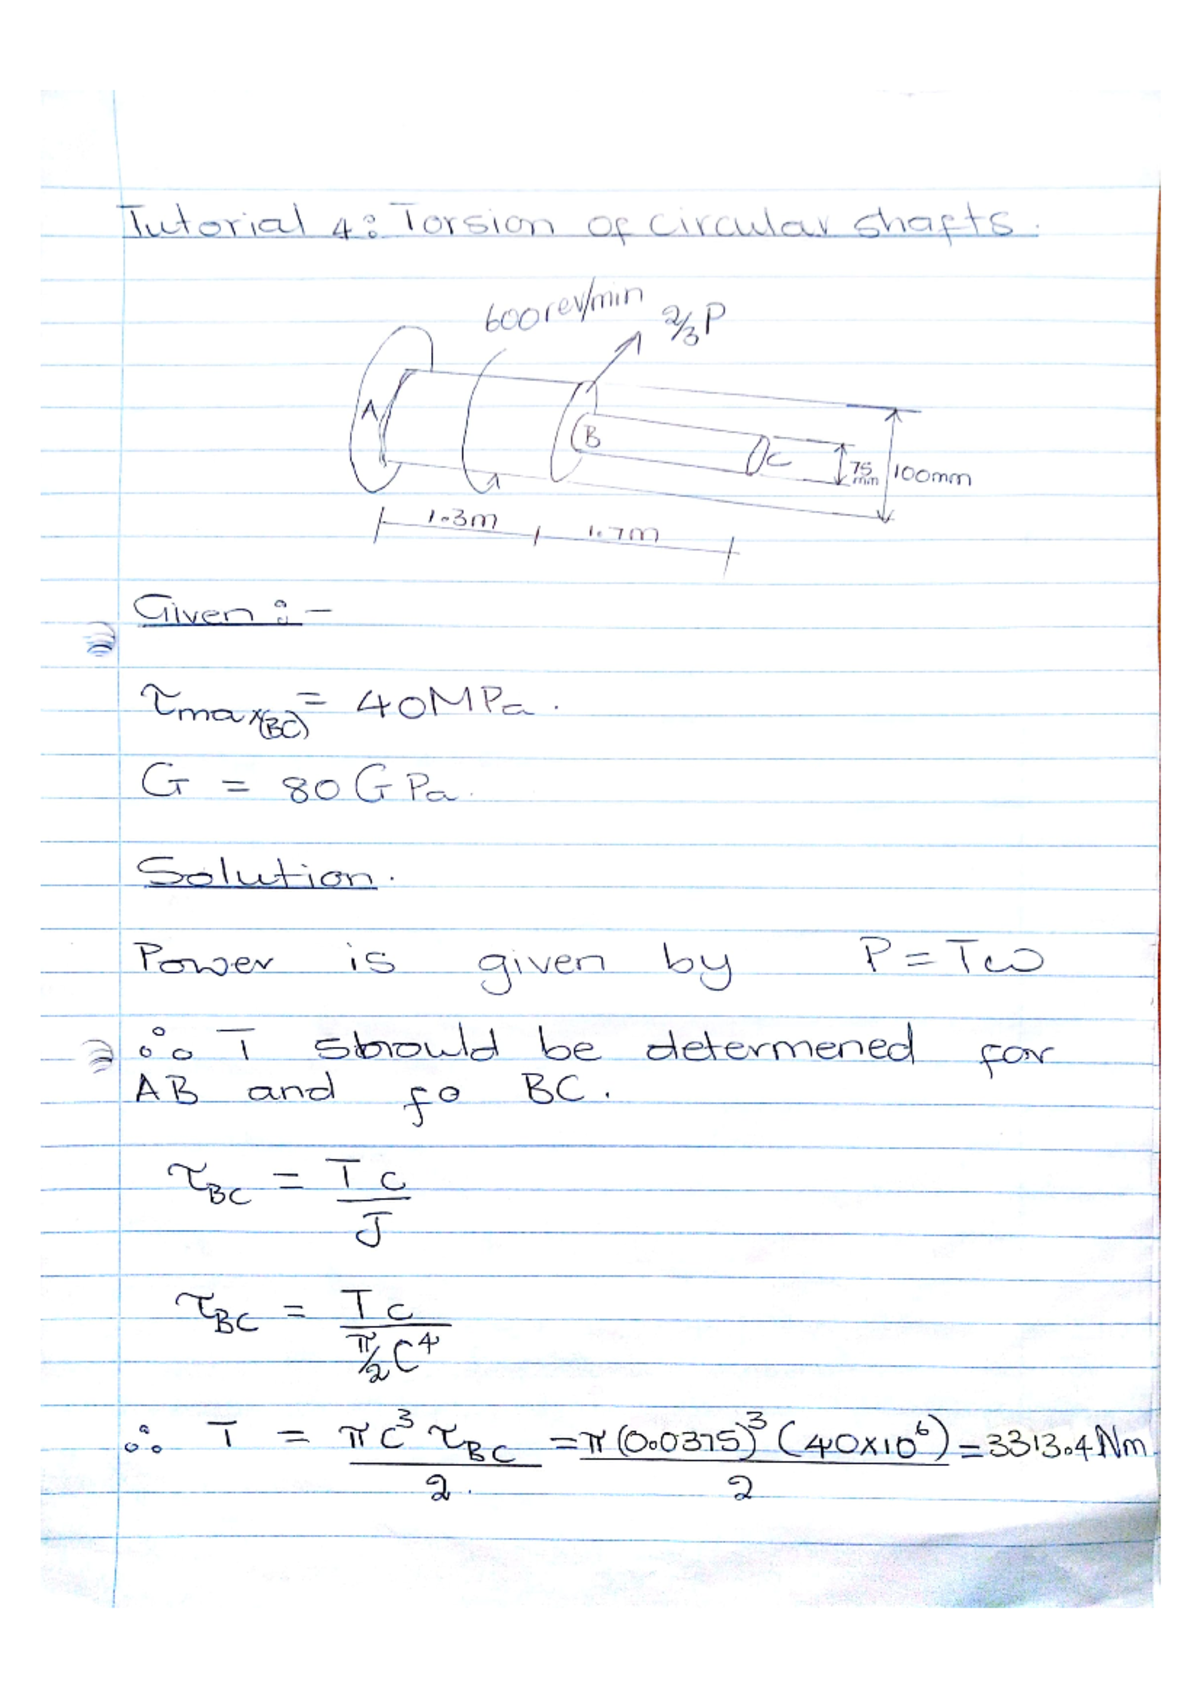 Tutorial 4: Torsion of circular shafts.
600rev/min
2/3 P
A
B
C
75 mm
100mm
1.3m
1.7m
Given :-
τmax(BC) = 40MPa.
G = 80GPa.
Solution.
Power is given by P = Tω
∴ T should be determened for
AB and fo BC.
τBC = Tc / J
τBC = Tc / π/2 C⁴
∴ T = πc³ τBC / 2. = π(0.0375)³ (40×10⁶) / 2 = 3313.4Nm